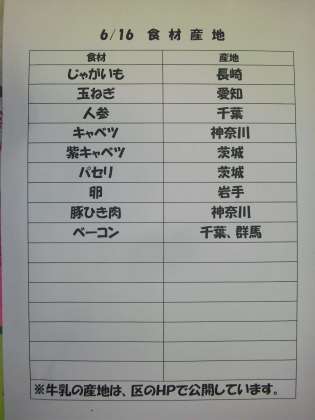 6/16 食材産地
食材 産地
じゃがいも 長崎
玉ねぎ 愛知
人参 千葉
キャベツ 神奈川
紫キャベツ 茨城
パセリ 茨城
卵 岩手
豚ひき肉 神奈川
ベーコン 千葉、群馬
※牛乳の産地は、区のHPで公開しています。